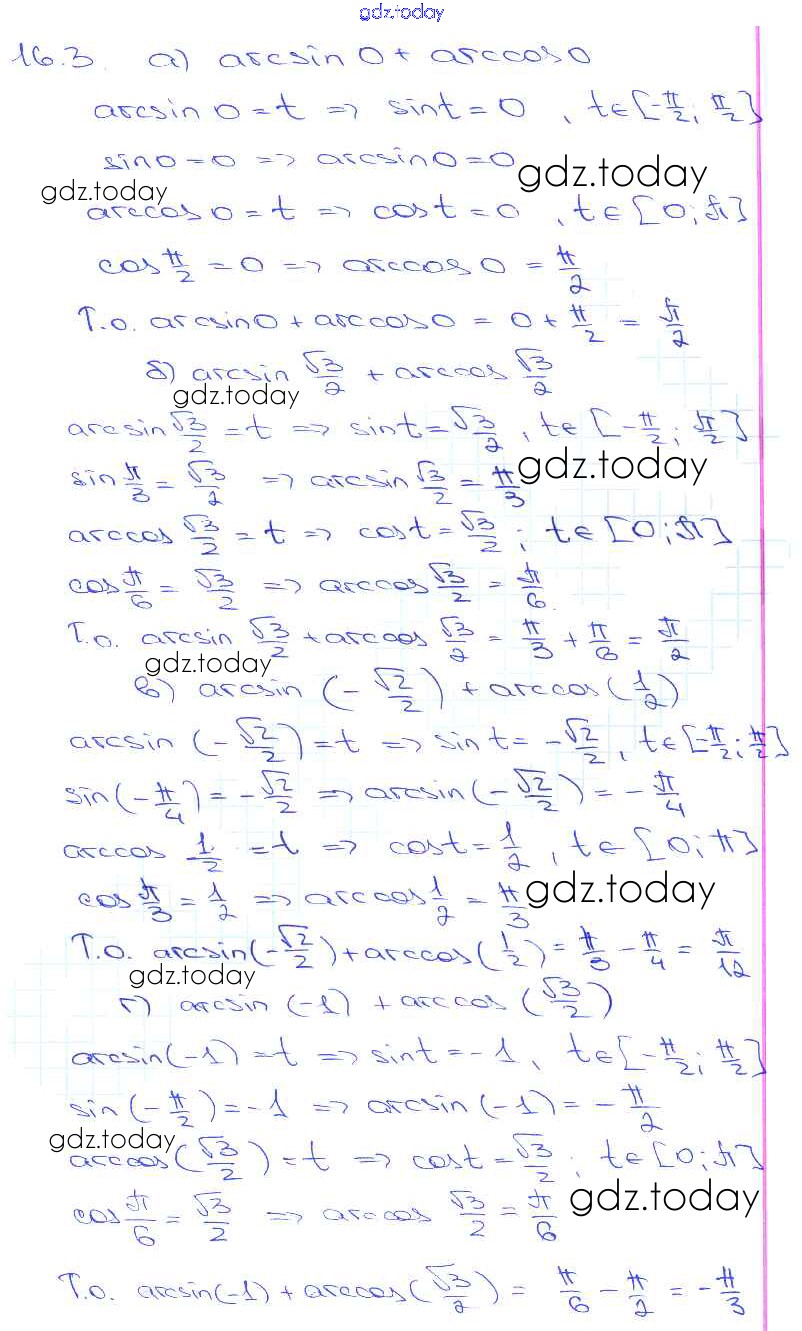 gdz.today
16.3. а) arcsin 0 + arccos 0
arcsin 0 = t => sin t = 0, t∈[-π/2; π/2]
sin 0 = 0 => arcsin 0 = 0
gdz.today gdz.today
arccos 0 = t => cos t = 0, t∈[0; π]
cos π/2 = 0 => arccos 0 = π/2
Т.о. arcsin 0 + arccos 0 = 0 + π/2 = π/2
б) arcsin √3/2 + arccos √3/2
gdz.today
arcsin √3/2 = t => sin t = √3/2, t∈[-π/2; π/2]
sin π/3 = √3/2 => arcsin √3/2 = π/3
gdz.today
arccos √3/2 = t => cos t = √3/2; t∈[0; π]
cos π/6 = √3/2 => arccos √3/2 = π/6.
Т.о. arcsin √3/2 + arccos √3/2 = π/3 + π/6 = π/2
gdz.today
в) arcsin (-√2/2) + arccos (1/2)
arcsin (-√2/2) = t => sin t = -√2/2, t∈[-π/2; π/2]
sin (-π/4) = -√2/2 => arcsin (-√2/2) = -π/4
arccos 1/2 = t => cos t = 1/2, t∈[0; π]
cos π/3 = 1/2 => arccos 1/2 = π/3
gdz.today
Т.о. arcsin (-√2/2) + arccos (1/2) = π/3 - π/4 = π/12
gdz.today
г) arcsin (-1) + arccos (√3/2)
arcsin (-1) = t => sin t = -1, t∈[-π/2; π/2]
sin (-π/2) = -1 => arcsin (-1) = -π/2
gdz.today
arccos (√3/2) = t => cos t = √3/2; t∈[0; π]
cos π/6 = √3/2 => arccos √3/2 = π/6
gdz.today
Т.о. arcsin (-1) + arccos (√3/2) = π/6 - π/2 = -π/3